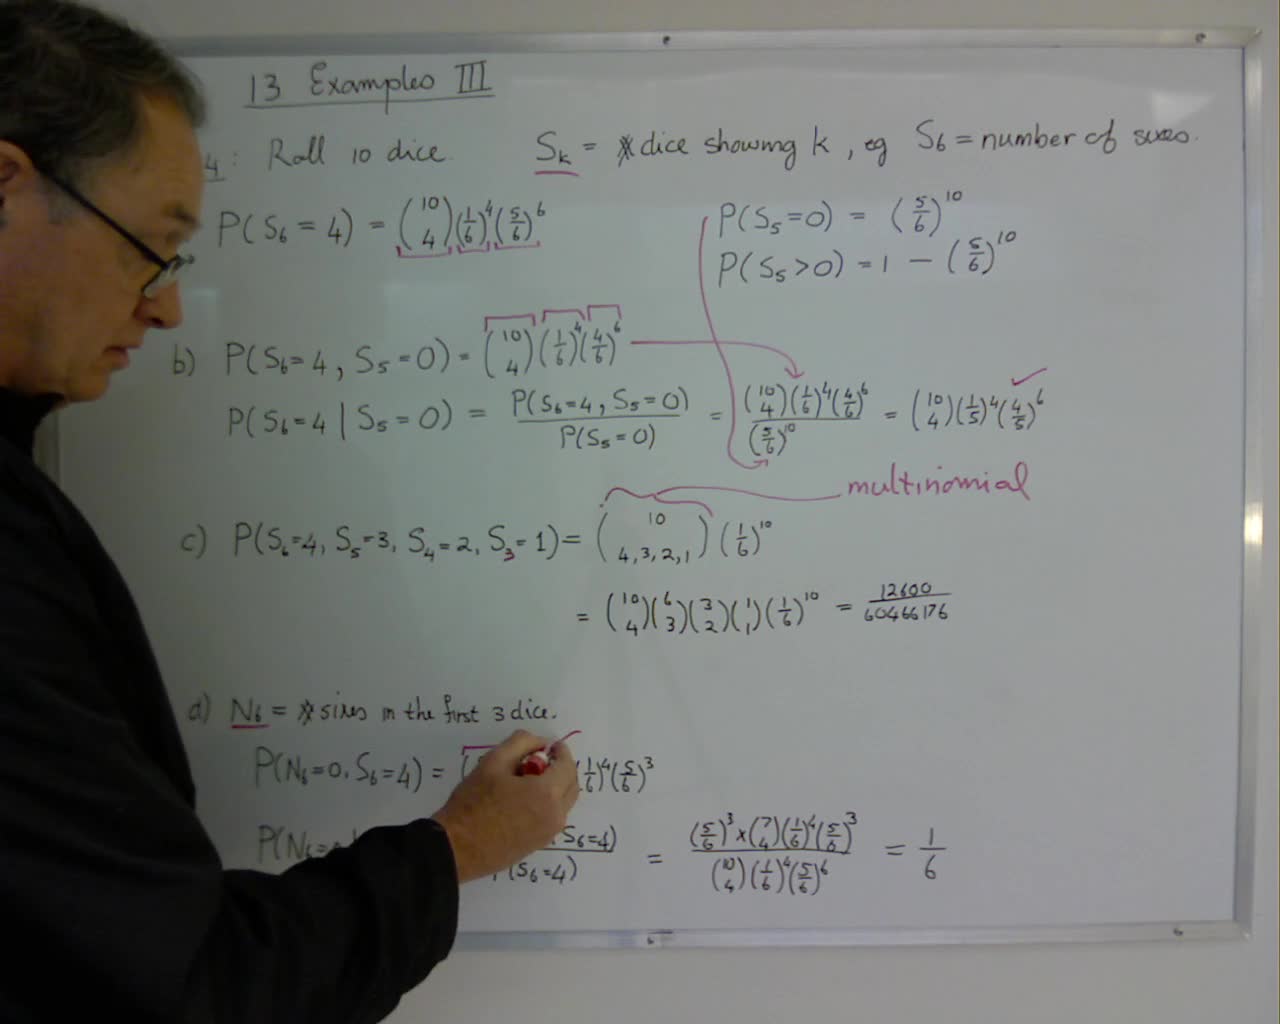 13 Examples III
4: Roll 10 dice. S_k = # dice showing k, eg S_6 = number of sixes.
P(S_6 = 4) = (10 4)(1/6)^4(5/6)^6
P(S_5 = 0) = (5/6)^10
P(S_5 > 0) = 1 − (5/6)^10
b) P(S_6 = 4, S_5 = 0) = (10 4)(1/6)^4(4/6)^6
P(S_6 = 4 | S_5 = 0) = P(S_6 = 4, S_5 = 0)/P(S_5 = 0) = (10 4)(1/6)^4(4/6)^6/(5/6)^10 = (10 4)(1/5)^4(4/5)^6 ✓
multinomial
c) P(S_6 = 4, S_5 = 3, S_4 = 2, S_3 = 1) = (10 4,3,2,1)(1/6)^10
= (10 4)(6 3)(3 2)(1 1)(1/6)^10 = 12600/60466176
d) N_6 = # sixes in the first 3 dice.
P(N_6 = 0, S_6 = 4) = (1/6)^4(5/6)^3
P(N_6 = S_6 = 4)/(S_6 = 4) = (5/6)^3 × (7 4)(1/6)^4(5/6)^3/(10 4)(1/6)^4(5/6)^6 = 1/6